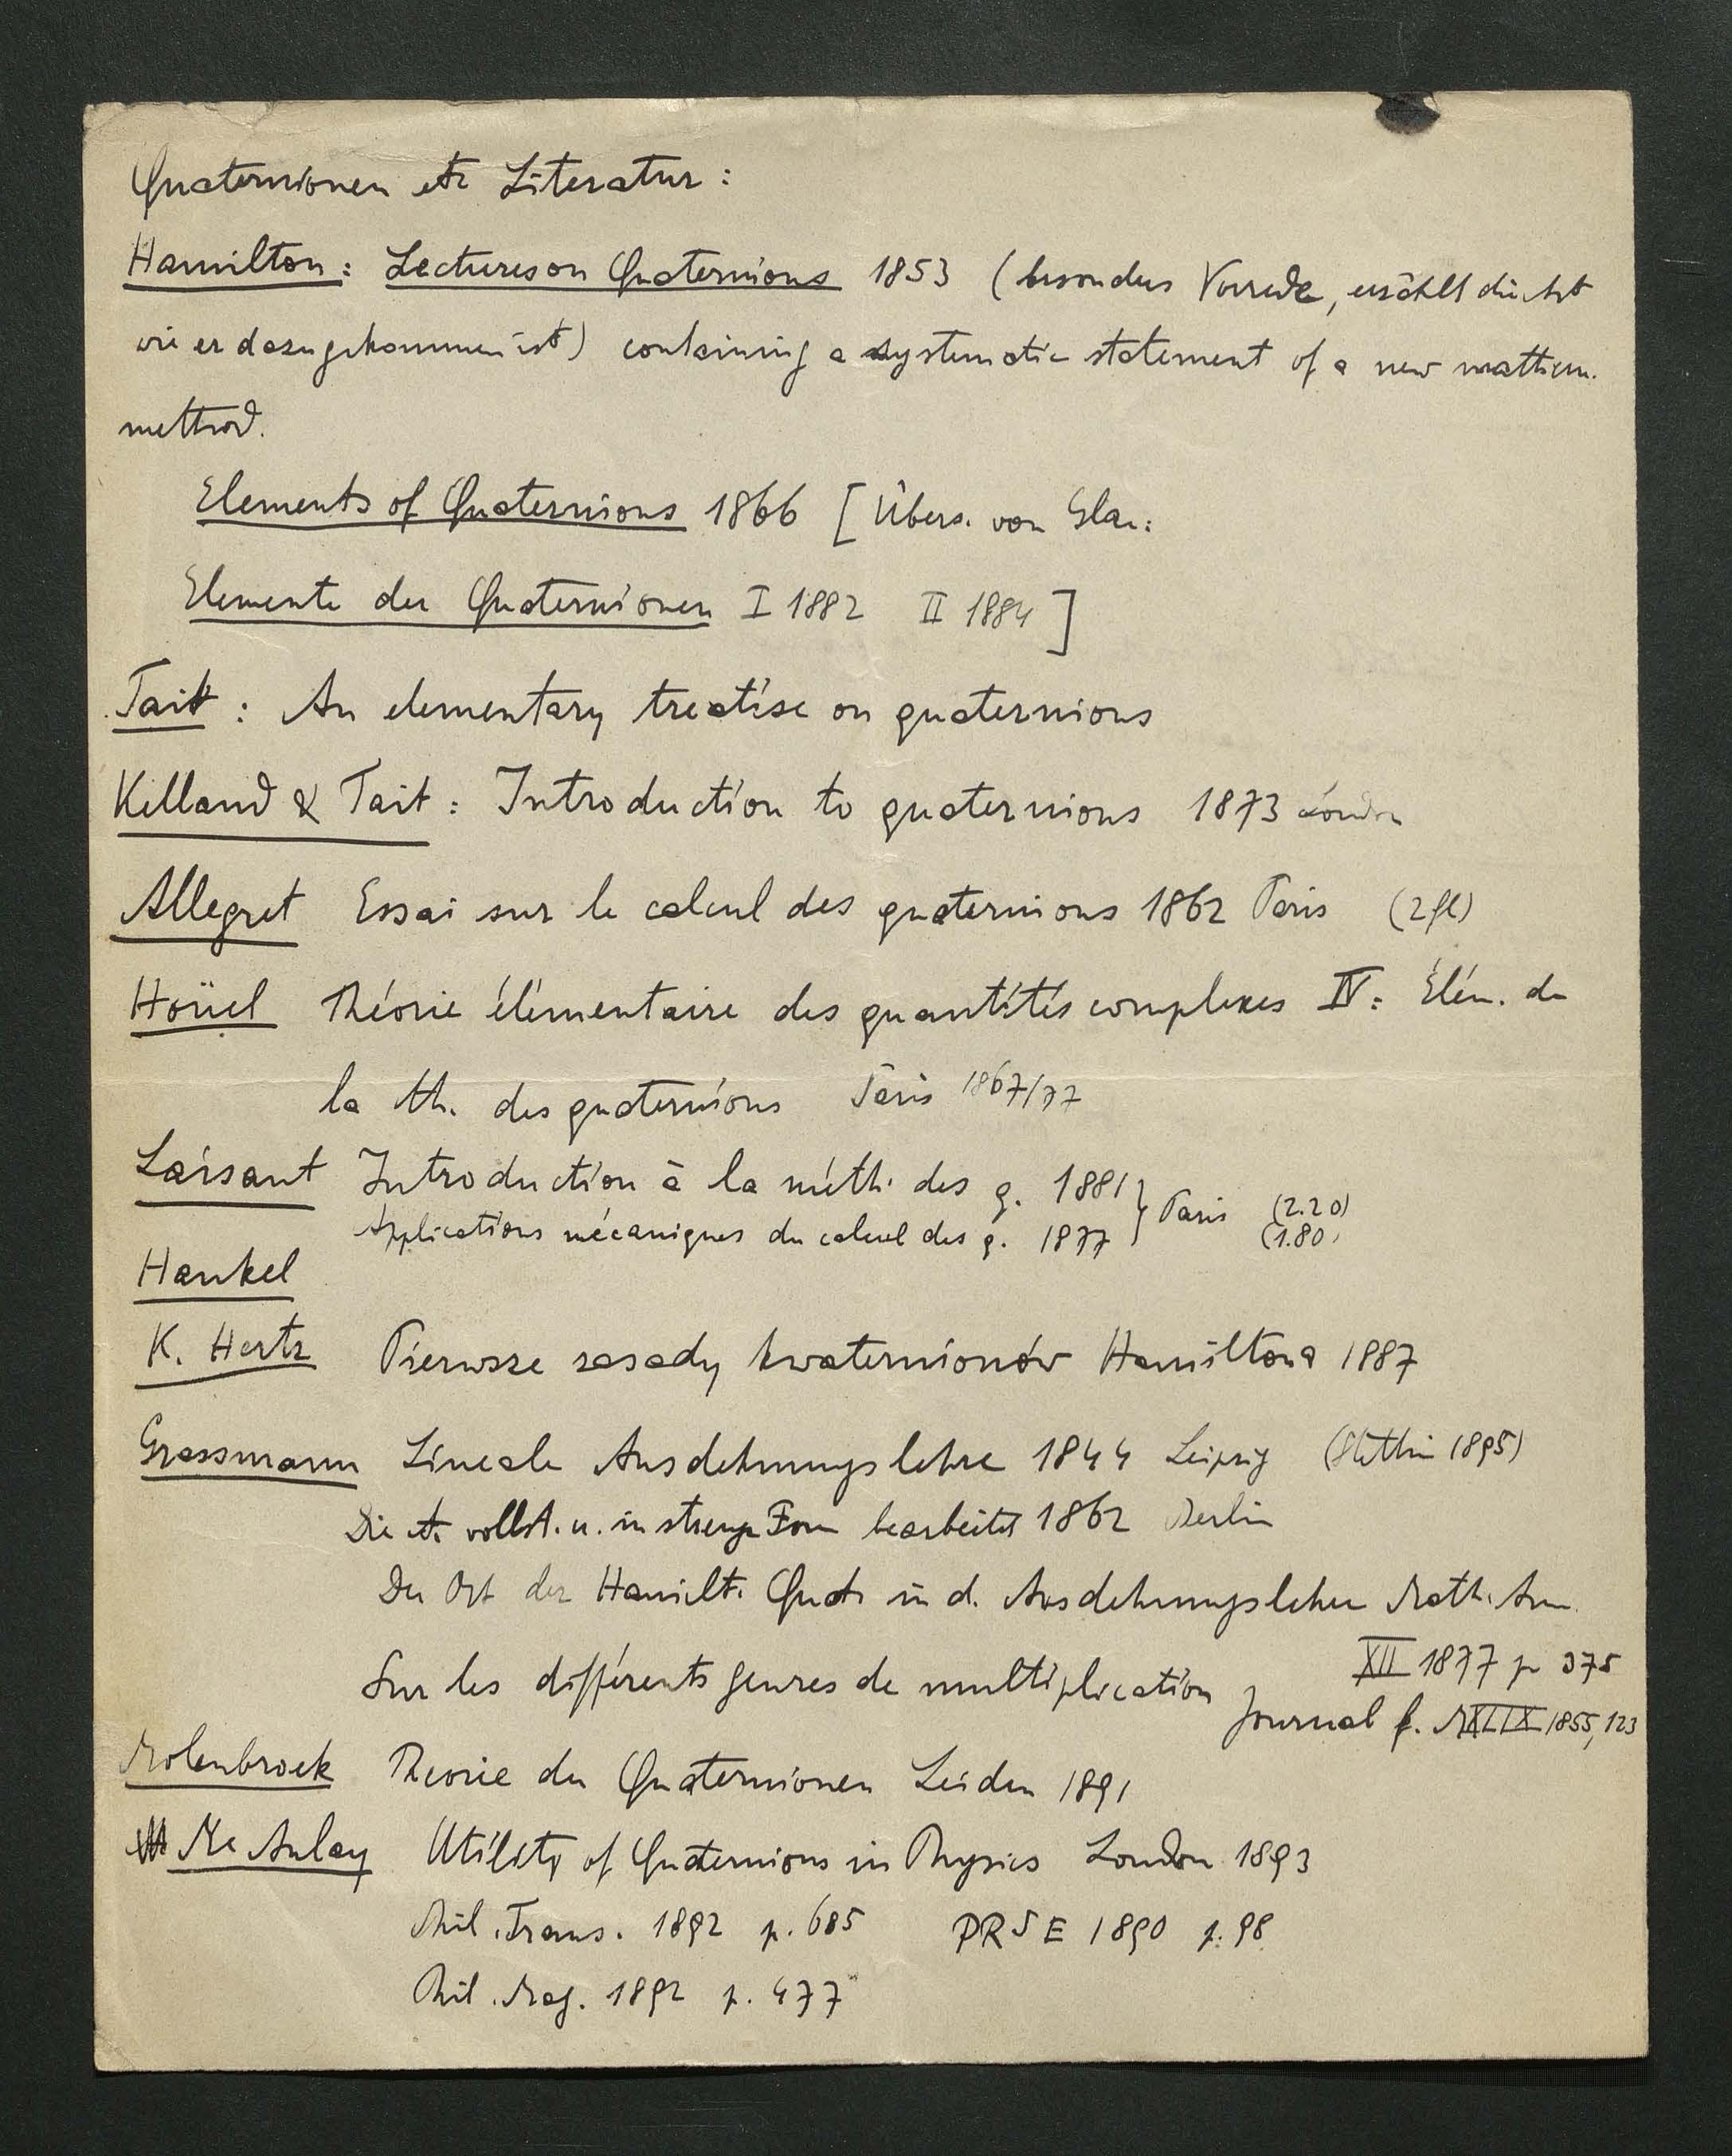 Quaternionen etc Literatur:
Hamilton: Lectures on Quaternions 1853 (besonders Vorrede, erzählt die Art
wie er dazu gekommen ist) containing a systematic statement of a new mathem.
method.
Elements of Quaternions 1866 [Übers. von Glan:
Elemente der Quaternionen I 1882 II 1884]
Tait: An elementary treatise on quaternions
Kelland & Tait: Introduction to quaternions 1873 London
Allegret Essai sur le calcul des quaternions 1862 Paris (2fl)
Hoüel Théorie élémentaire des quantités complexes IV: Élém. de
la th. des quaternions Paris 1867/77
Laisant Introduction à la méth. des q. 1881 } Paris (2.20)
Applications mécaniques du calcul des q. 1877 (1.80)
Hankel
K. Hertz Pierwsze zasady kwaternionów Hamiltona 1887
Grassmann Lineale Ausdehnungslehre 1844 Leipzig (Stettin 1895)
Die A. vollst. u. in strenger Form bearbeitet 1862 Berlin
Der Ort der Hamilt. Quat. in d. Ausdehnungslehre Math. Ann.
XII 1877 p 375
Sur les différents genres de multiplication
Journal f. M XLIX 1855, 123
Molenbroek Theorie der Quaternionen Leiden 1891
Mc Aulay Utility of Quaternions in Physics London 1893
Phil. Trans. 1892 p. 685 PRSE 1890 p. 98
Phil. Mag. 1892 p. 477